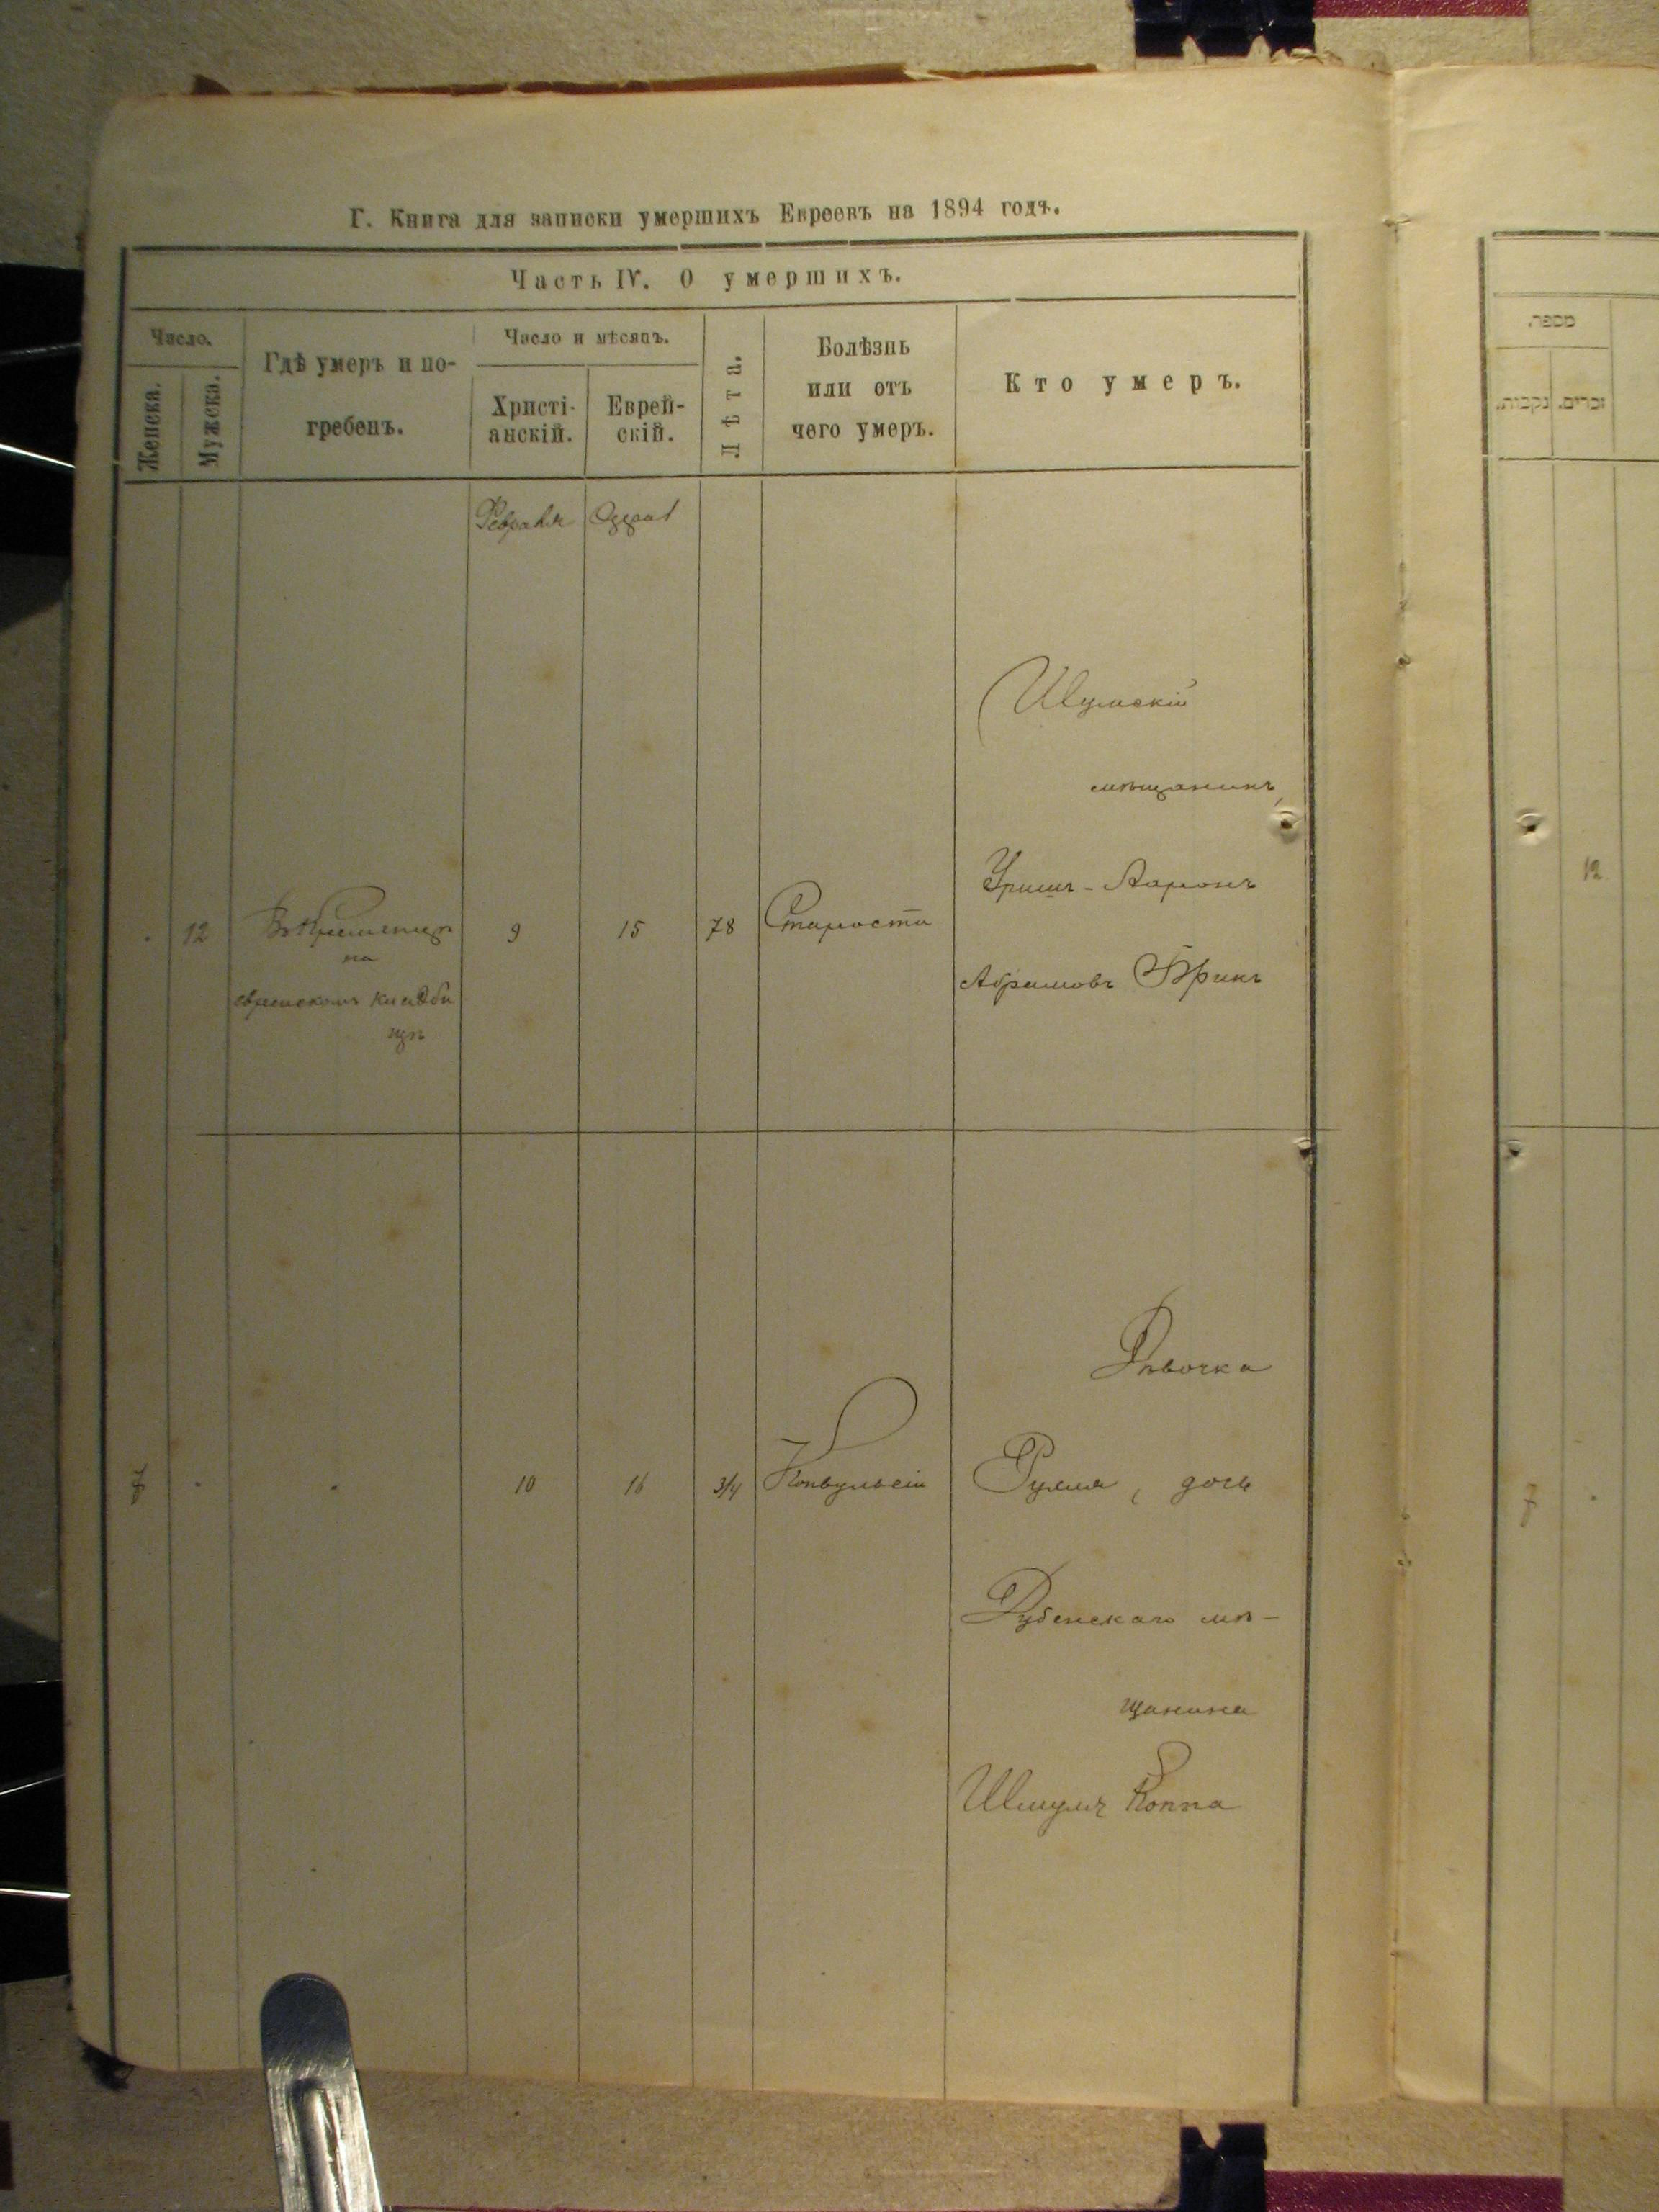 Г. Книга для записки умершихъ Евреевъ на 1894 годъ.
Часть IV. О умершихъ.
Число.
Женска.
Мужска.
Гдѣ умеръ и по-
гребенъ.
Число и мѣсяцъ.
Христі-
анскій.
Еврей-
скій.
Лѣта.
Болѣзнь
или отъ
чего умеръ.
Кто умеръ.
Февраля
Шумскій
мѣщанинъ
12 Въ Кременцѣ 9 15 78 Старости
на
еврейскомъ кладби
щѣ
Ааронъ
Абрамовъ Брикъ
Дѣвочка
7 10 16 3/4 Конвульсіи дочь
Дубенскаго мѣ-
щанина
Шмуля Коппа
מספר.
נקבות.
זכרים.
12
7